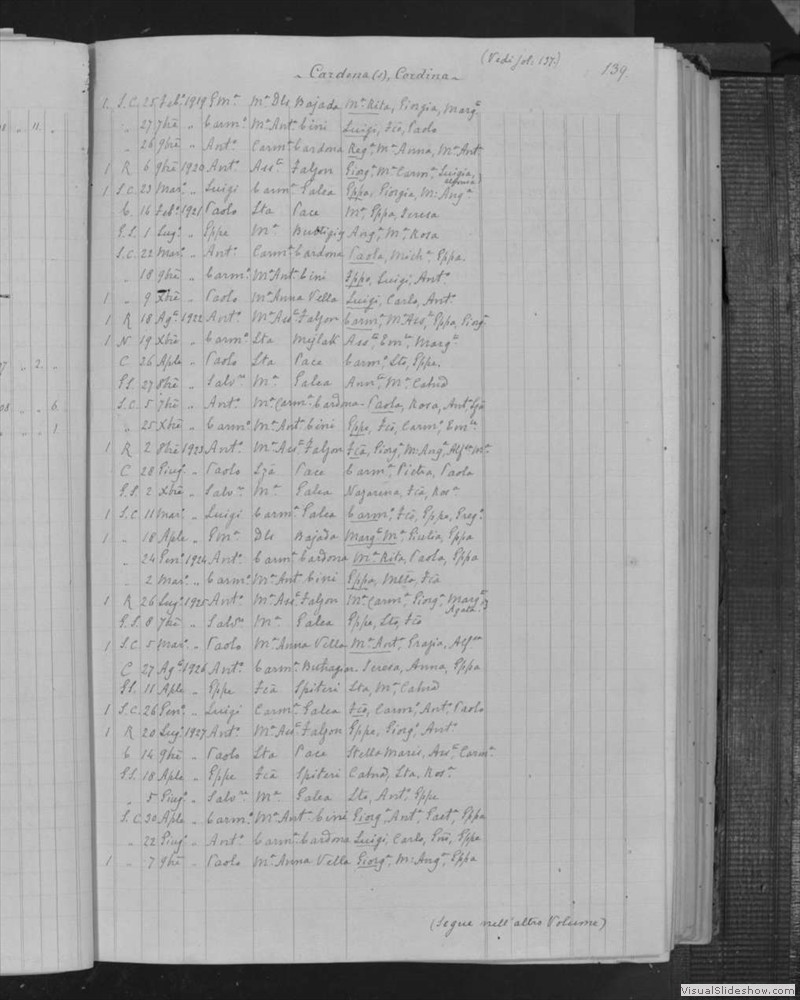 (Vedi fol. 137.)
139.
Cardona(s), Cordina
1. S.C. 25 Feb.º 1919 Em.ˡ M.ª Dls Bajada M.ª Rita, Giorgia, Marg.ª
" 27 7bre " Carm.º M.ª Ant. Cini Luigi, Fcō, Paolo
" 26 9bre " Ant.º Carm.ª Cardona Reg.ª M.ª Anna, M.ª Ant.
1 R 6 9bre 1920 Ant.º Ass.ª Falzon Giorg.ª M.ª Carm.ª Luigia,
1 S.C. 23 Mar.º " Luigi Carm.ª Galea Eppa, Giorgia, M.ª Ang.ª
C. 16 Feb.º 1921 Paolo Sta Pace M.ª Eppa, Teresa
G.S. 1 Lug.º " Eppe M.ª Buttigieg Ang.ª, M.ª Rosa
S.C. 22 Mar.º " Ant.º Carm.ª Cardona Paola, Mich.ª Eppa
" 18 9bre " Carm.º M.ª Ant. Cini Eppe, Luigi, Ant.º
1 " 9 Xbre " Paolo M.ª Anna Vella Luigi, Carlo, Ant.º
1 R 18 Ag.º 1922 Ant.º M.ª Ass.ª Falzon Carm.ª, M.ª Ass.ª, Eppa, Giorg.ª
1 N 19 Xbre " Carm.º Sta Mejlak Ass.ª, Em.ª, Marg.ª
C 26 Aple " Paolo Sta Pace Carm.º, Sto, Eppe
G.S. 27 8bre " Salv.ʳᵉ M.ª Galea Ann.ª, M.ª
S.C. 5 7bre " Ant.º M.ª Carm.ª Cardona Paola, Rosa, Ant.ª
" 25 Xbre " Carm.º M.ª Ant. Cini Eppe, Fcō, Carm.º, Em.ˡᵉ
1 R 2 8bre 1923 Ant.º M.ª Ass.ª Falzon Fcā, Giorg.ª, M.ª Ang.ª, M.ª
C 28 Giug.º " Paolo Pace Carm.ª, Pietra, Paola
G.S. 2 Xbre " Salv.ʳᵉ M.ª Galea Nazarena, Fcā, Ros.ª
1 S.C. 11 Mar.º " Luigi Carm.ª Galea Carm.º, Fcō, Eppe, Greg.º
1 " 18 Aple " Em.ˡ Dls Bajada Marg.ª M.ª Giulia, Eppa
" 24 Gen.º 1924 Ant.º Carm.ª Cardona M.ª Rita, Paola, Eppa
" 2 Mar.º " Carm.º M.ª Ant. Cini Eppa, Fcā
1 R 26 Lug.º 1925 Ant.º M.ª Ass.ª Falzon M.ª Carm.ª, Giorg.ª Marg.ª
Agata
G.S. 8 7bre " Salv.ʳᵉ M.ª Galea Eppe, Sto, Fcō
1 S.C. 5 Mar.º " Paolo M.ª Anna Vella M.ª Ant.ª, Grazia,
C 27 Ag.º 1926 Ant.º Carm.ª Buhagiar Teresa, Anna, Eppa
G.S. 11 Aple " Eppe Fcā Spiteri Sta, M.ª
1 S.C. 26 Gen.º " Luigi Carm.ª Galea Fcō, Carm.º, Ant.º, Paolo
1 R 20 Lug.º 1927 Ant.º M.ª Ass.ª Falzon Eppe, Giorg.º, Ant.º
C 14 9bre " Paolo Sta Pace Stella Maris, Ass.ª, Carm.ª
G.S. 18 Aple " Eppe Fcā Spiteri Sta, Ros.ª
" 5 Giug.º " Salv.ʳᵉ M.ª Galea Sto, Ant.º, Eppe
S.C. 30 Aple " Carm.º M.ª Ant. Cini Giorg.º, Ant.º, Gaet.º, Eppe
" 22 Giug.º " Ant.º Carm.ª Cardona Luigi, Carlo, Eppe
1 " 7 9bre " Paolo M.ª Anna Vella Giorg.ª, M.ª Ang.ª, Eppa
(Segue nell'altro Volume)
VisualSlideshow.com